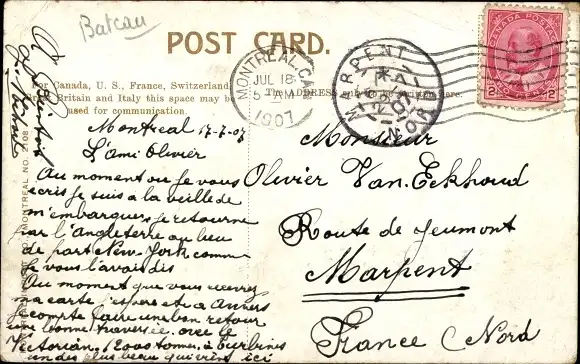 Bateau
POST CARD.
For Canada, U. S., France, Switzerland,
Britain and Italy this space may be
used for communication.
The ADDRESS
MONTREAL, CAN.
JUL 18
1907
MARPENT
NORD
CANADA POSTAGE
2 CENTS 2
MONTREAL NO.
Montreal 17-7-07
L'ami Olivier
Au moment ou je vous
ecris je suis a la veille de
m'embarquer, je retourne
par l'Angleterre au lieu
de part New-York comme
je vous l'avais dis
Au moment que vous
ma carte j'espere etre a Anvers
je compte faire une bon retour
une bonne traversée. avec le
Victorian, 12000 tonnes, a turbines
un des plus beau qui vient ici
Monsieur
Olivier Van.Eckhoud
Route de Jeumont
Marpent
France (Nord